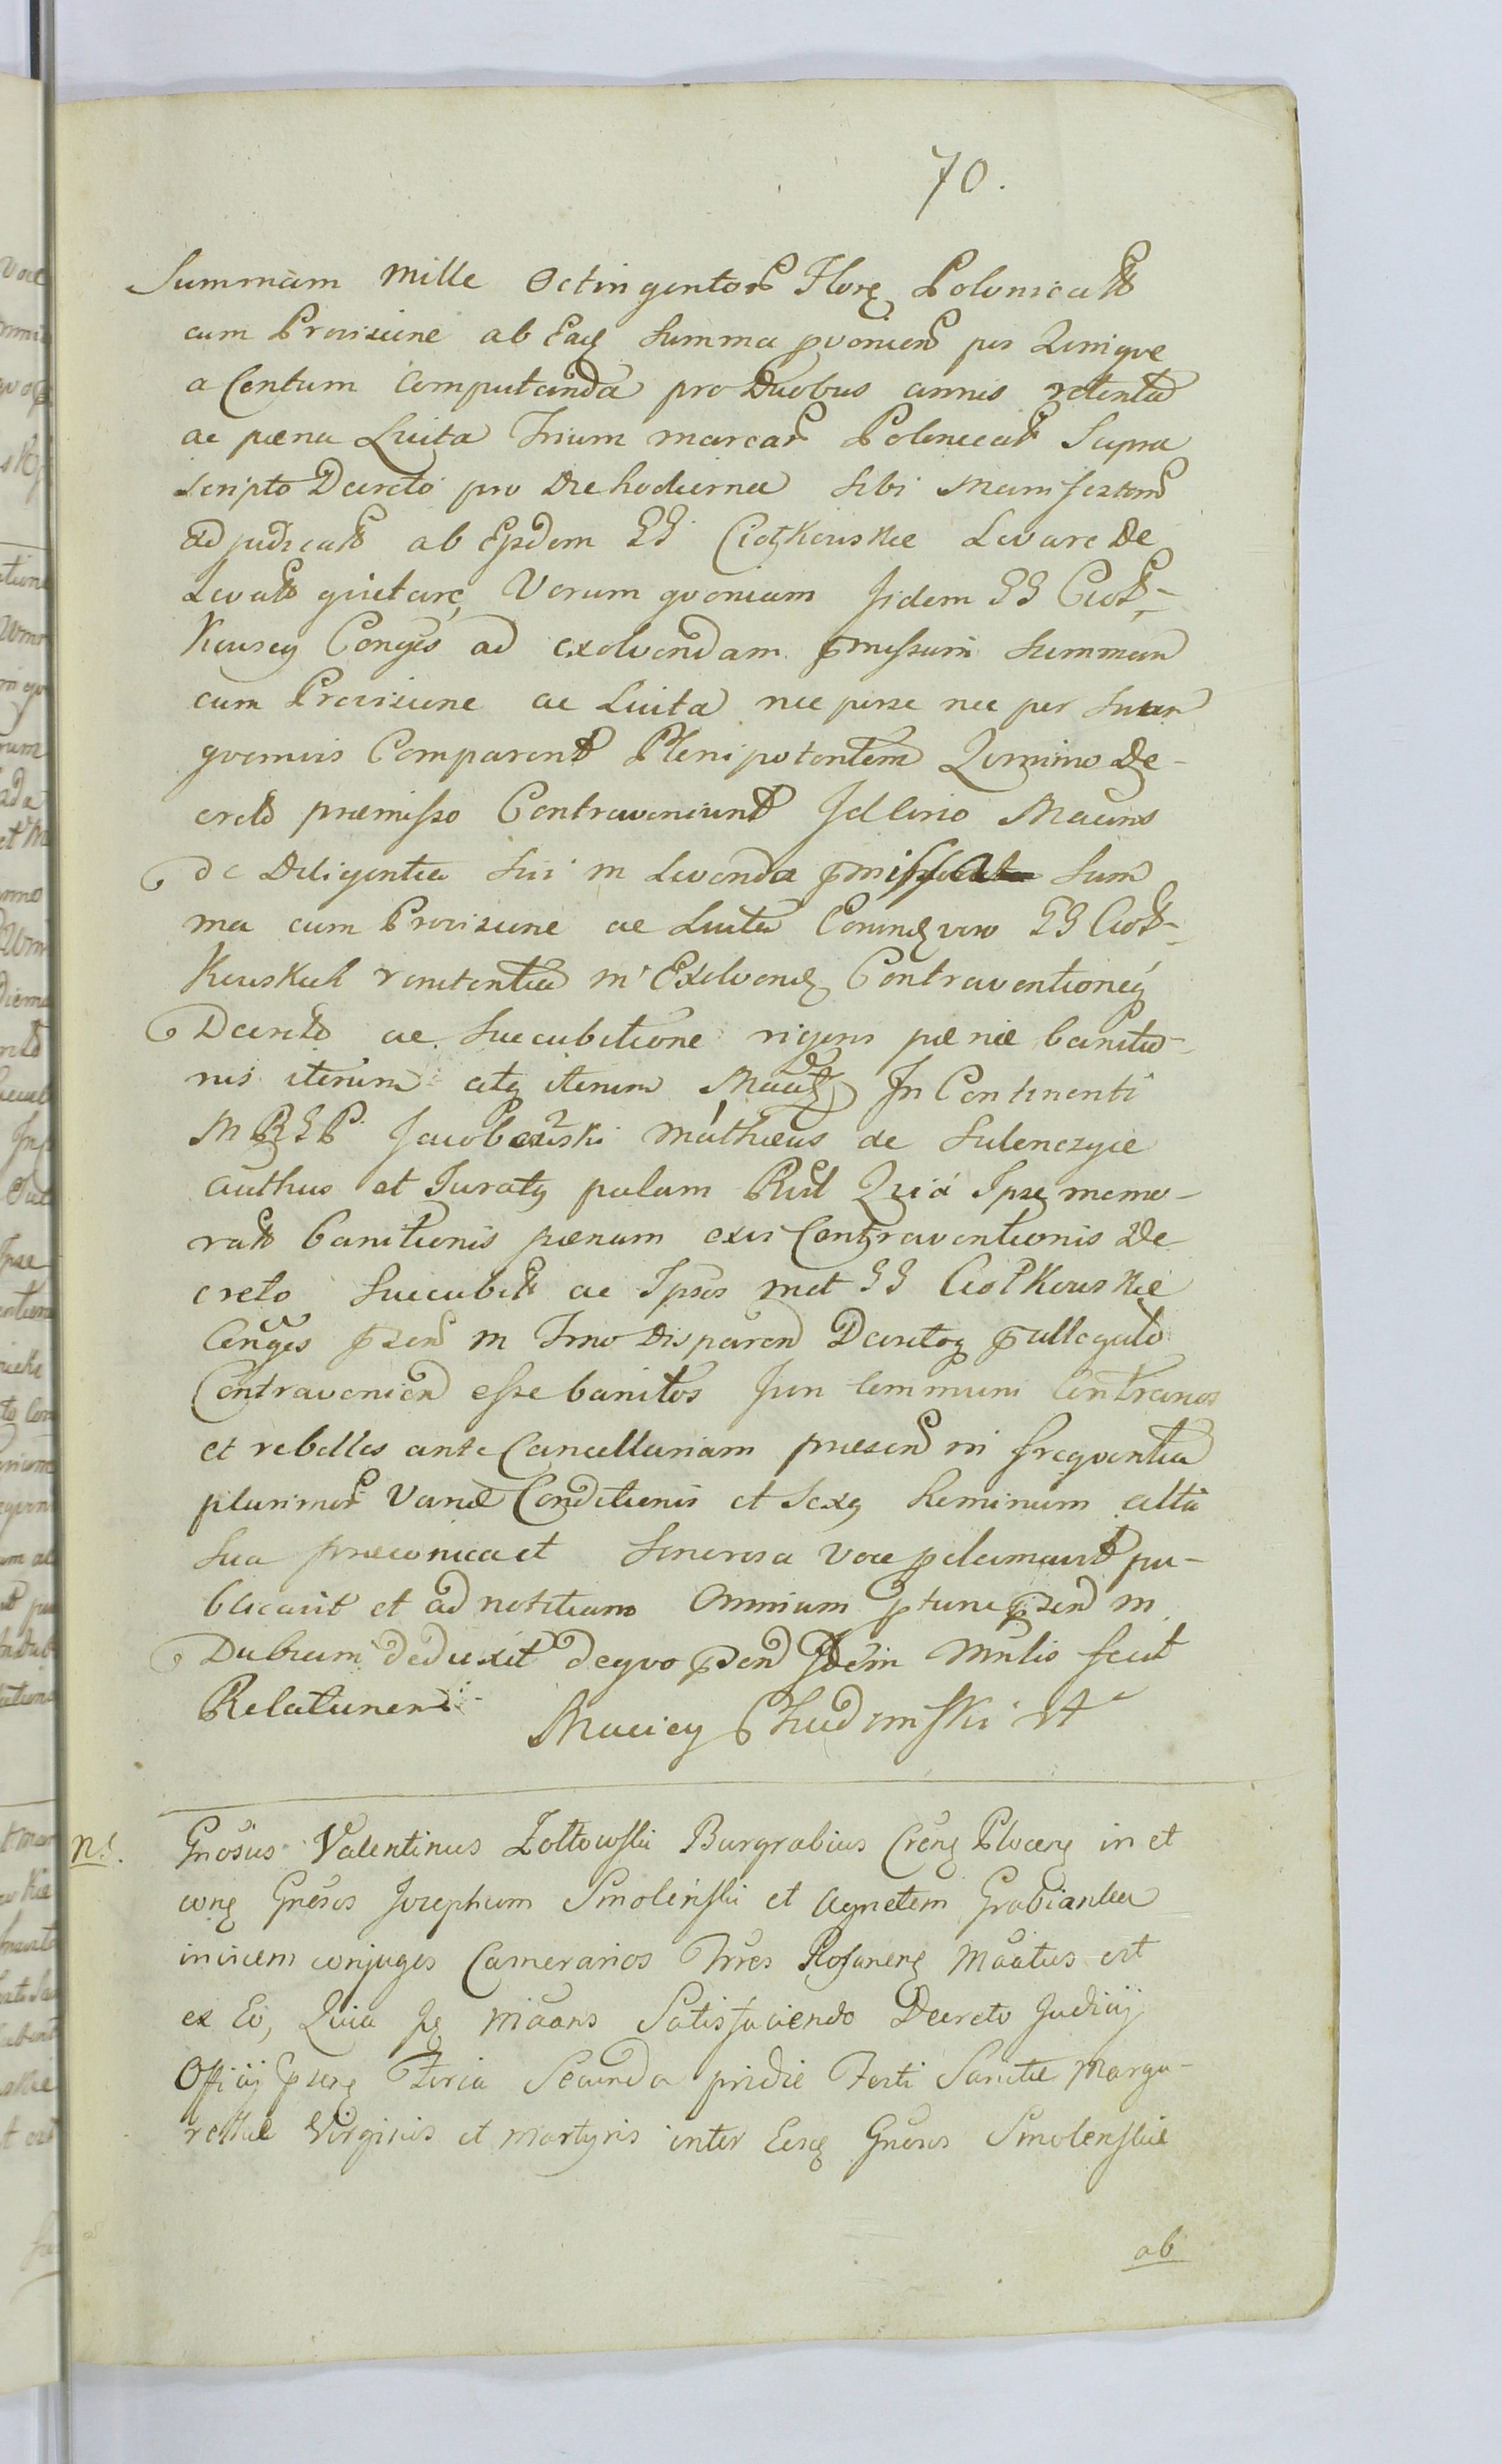 70.
Summam Mille Octingentor Flor Polonicat
cum Provisione ab Eaq Summa pvenien per Quinque
a Centum Computanda pro Duobus annis retenta
ac pœna Luita Trium marcar Polonicat Supra
scripto Decreto pro Die hodierna Sibi Manifestan
adjudicat ab Ejsdem GG Ciołkowskie Levare De
Levat quietare, Verum quoniam Jidem GG Cioł-
Kowscy Conges ad exolvendam pmissam Summam
cum Provisione ac Luita nec per se nec per Suum
quemvis Comparent Plenipotentem Quinimo De-
creto præmisso Contraveniunt Jdcirco Maans
de Diligentia Sui in Levanda pmissa Sum
ma cum Provisione ac Luita Eorumq vero GG Cioł-
Kowskich renitentia in Exolvend Contraventioneq
Decreto ac Succubitione rigens pœnæ banitio-
nis iterum atq iterum Maat In Continenti
M R G P Jacobowski Mathæus de Sulenczyce
authus et Juratg palam Rist Quia Ipse memo-
rat banitionis pœnam ex vi Contraventionis De
creto Succubit ac Ipsos met GG Ciołkowskie
Conges pzen in Trno Disparen Decretoq pallegato
Contravenien esse banitos Jun Communi Contrarios
et rebelles ante Cancellariam præsen in frequentia
plurimor Variæ Conditionis et Sexg hominum alta
Sua præconica et Sonorosa voce pclamavit pu-
blicavit et ad notitiam Omnium ptunc pzen in
Dubium deduxit de quo pzen Jdem Mnlis fecit
Relationem
Maciey Chudzinski
n.s. Gnosus Valentinus Zołtowski Burgrabius Creng Płoceng in et
cong Gnosos Josephum Smolenski et Agnetem Grabianka
invicem conjuges Camerarios Trres Rosaneng Maatus est
ex Eo, Quia Jg Maans Satisfaciendo Decreto Judicij
Officij pzeng Feria Secunda pridie Festi Sanctæ Marga-
rethæ Virginis et Martyris inter Eosq Gnosos Smolenskie
ab